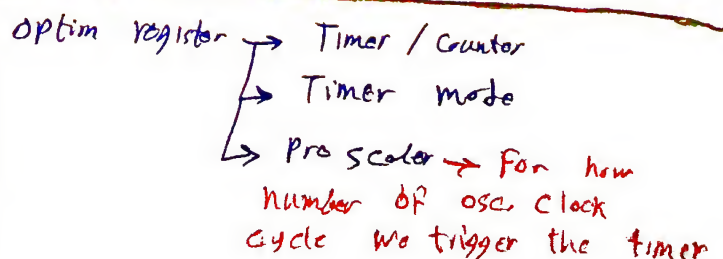 Option register → Timer / Counter
→ Timer mode
→ Prescaler → For how
number of osc. clock
cycle we trigger the timer